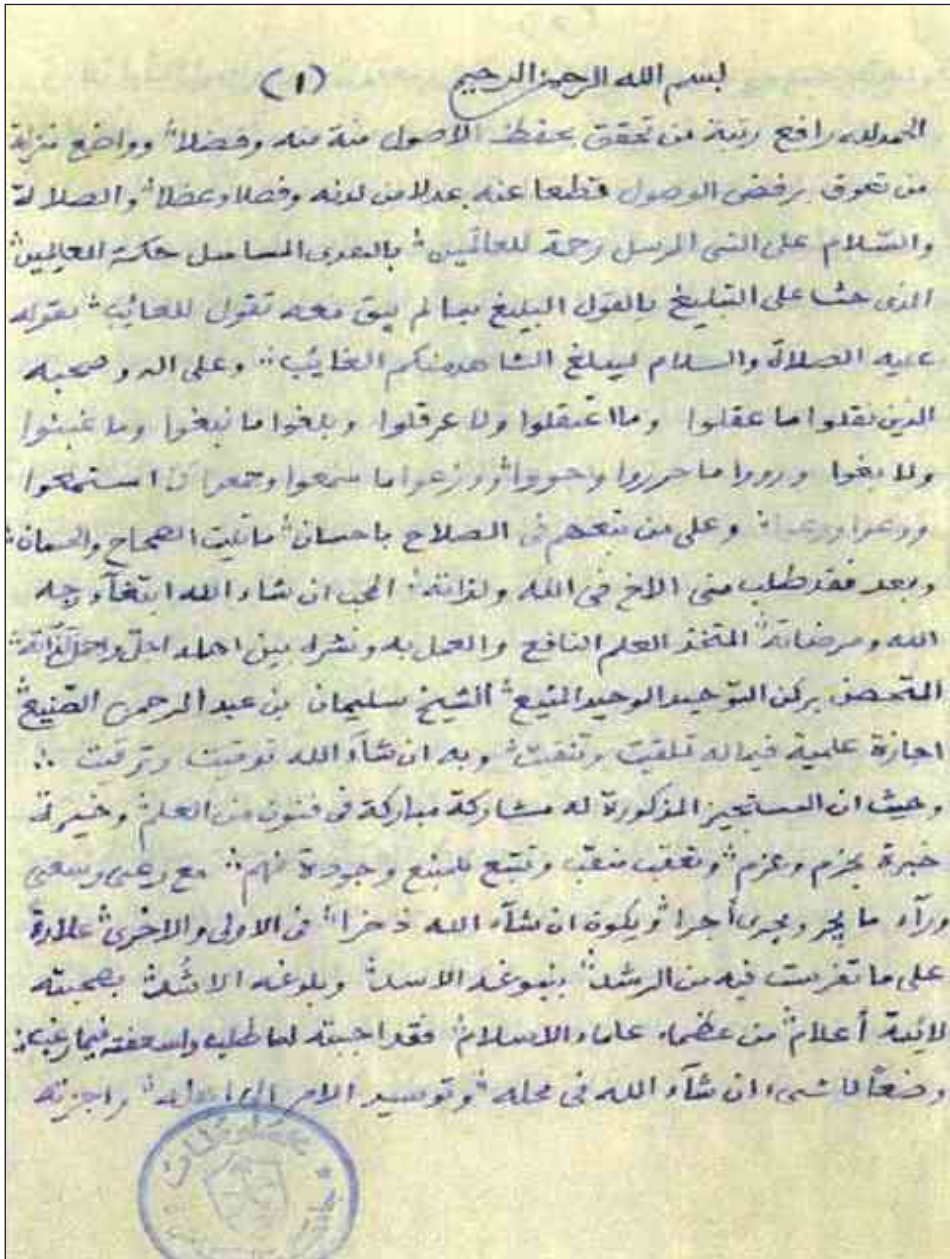 بسم الله الرحمن الرحيم (1)
الحمدلله رافع رتبة من تحقق بحفظ الاصول منة منه وفضلا وواضع منزلة
من تعوق برفض الوصول قطعا عنه عدلا من لدنه وفصلا وعضلا والصلاة
والسلام على النبي المرسل رحمة للعالمين حكمة للعالمين
الذى حث على التبليغ بالقول البليغ بما لم يبق معه تقول للعائب بقوله
عليه الصلاة والسلام ليبلغ الشاهد منكم الغايب وعلى اله وصحبه
الذين نقلوا ما عقلوا وما اعتقلوا ولا عرقلوا وبلغوا ما نبغوا وما غبنوا
ولا بغوا ورووا ما حرروا وحووا ما سمعوا استمعوا
ووعوا ورعوا وعلى من تبعهم فى الصلاح باحسان الصحاح والحسان
وبعد فقد طلب منى الاخ فى الله ولذاته المحب ان شاء الله ابتغآء وجه
الله ومرضاته المتخذ العلم النافع والعمل به ونشره بين اهله
المتحصن بركن التوحيد الوحيد المنيع الشيخ سليمان بن عبد الرحمن الصنيع
اجازة علمية فيما له تلقيت وبه ان شآء الله توقيت وترقيت
وحيث ان المستجيز المذكورة له مشاركة مباركة فى فنون من العلم وخيرة
خبرة بحزم وعزم وتعقب وتتبع وجودة فهم مع وعى وسعى
ورآء ما يجر ويجرى أجرا ويكون ان شآء الله ذخرا فى الاولى والاخرى علاوة
على ما تفرست فيه من الرشد وبلوغه الاشد بصحبته
لائمة أعلام من عظماء علماء الاسلام فقد اجبته لما طلبه واسعفته فيما رغبه
وضعا للشىء ان شآء الله فى محله وتوسيد الامر الى اهله واجزته